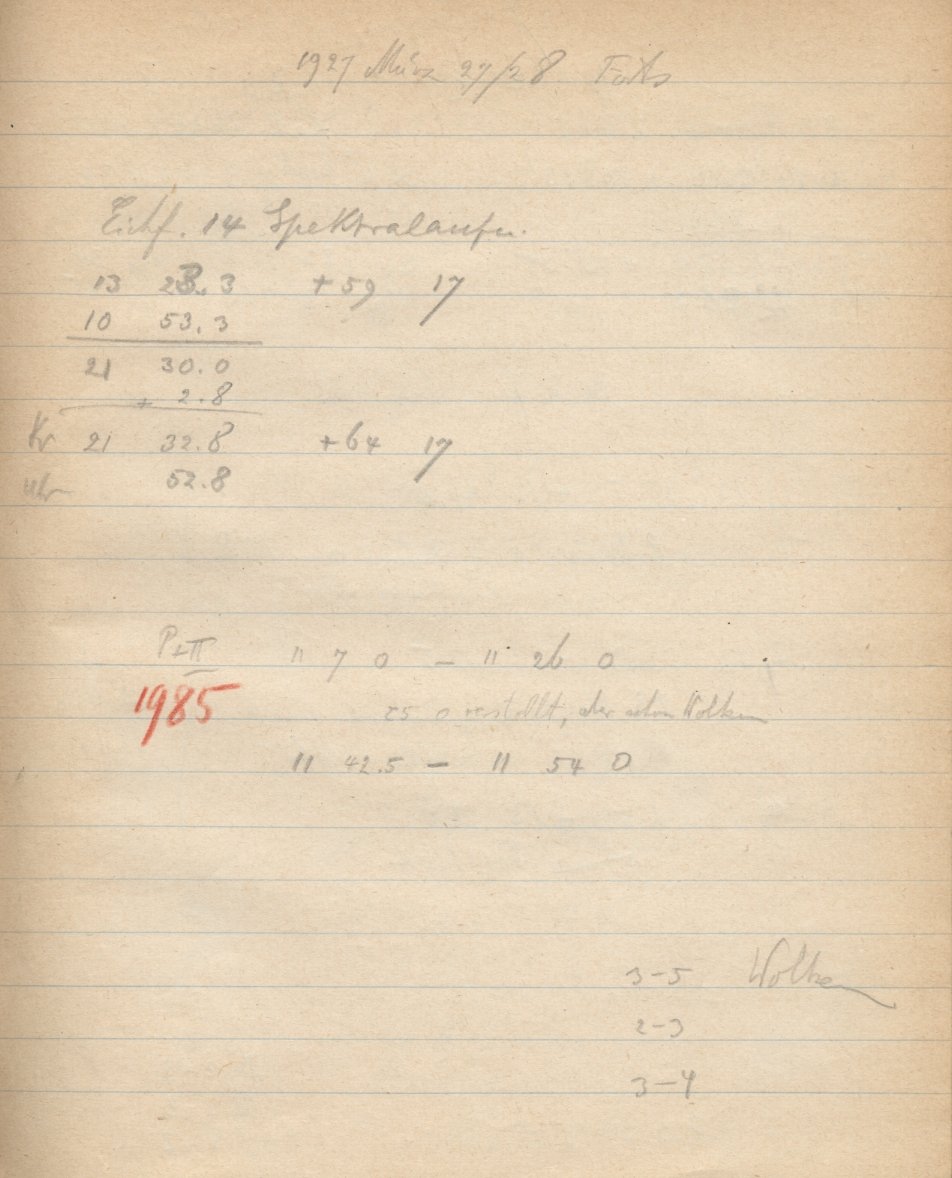 1927 März 27/28
Eichf. 14 Spektralaufn.
13 23.3 +59 17
10 53.3
21 30.0
+ 2.8
Kr 21 32.8 +64 17
Uhr 52.8
Pl II 11 7 0 – 11 26 0
1985 25 0 verstellt, aber schon Wolken
11 42.5 – 11 54 0
3–5 Wolken
2–3
3–4